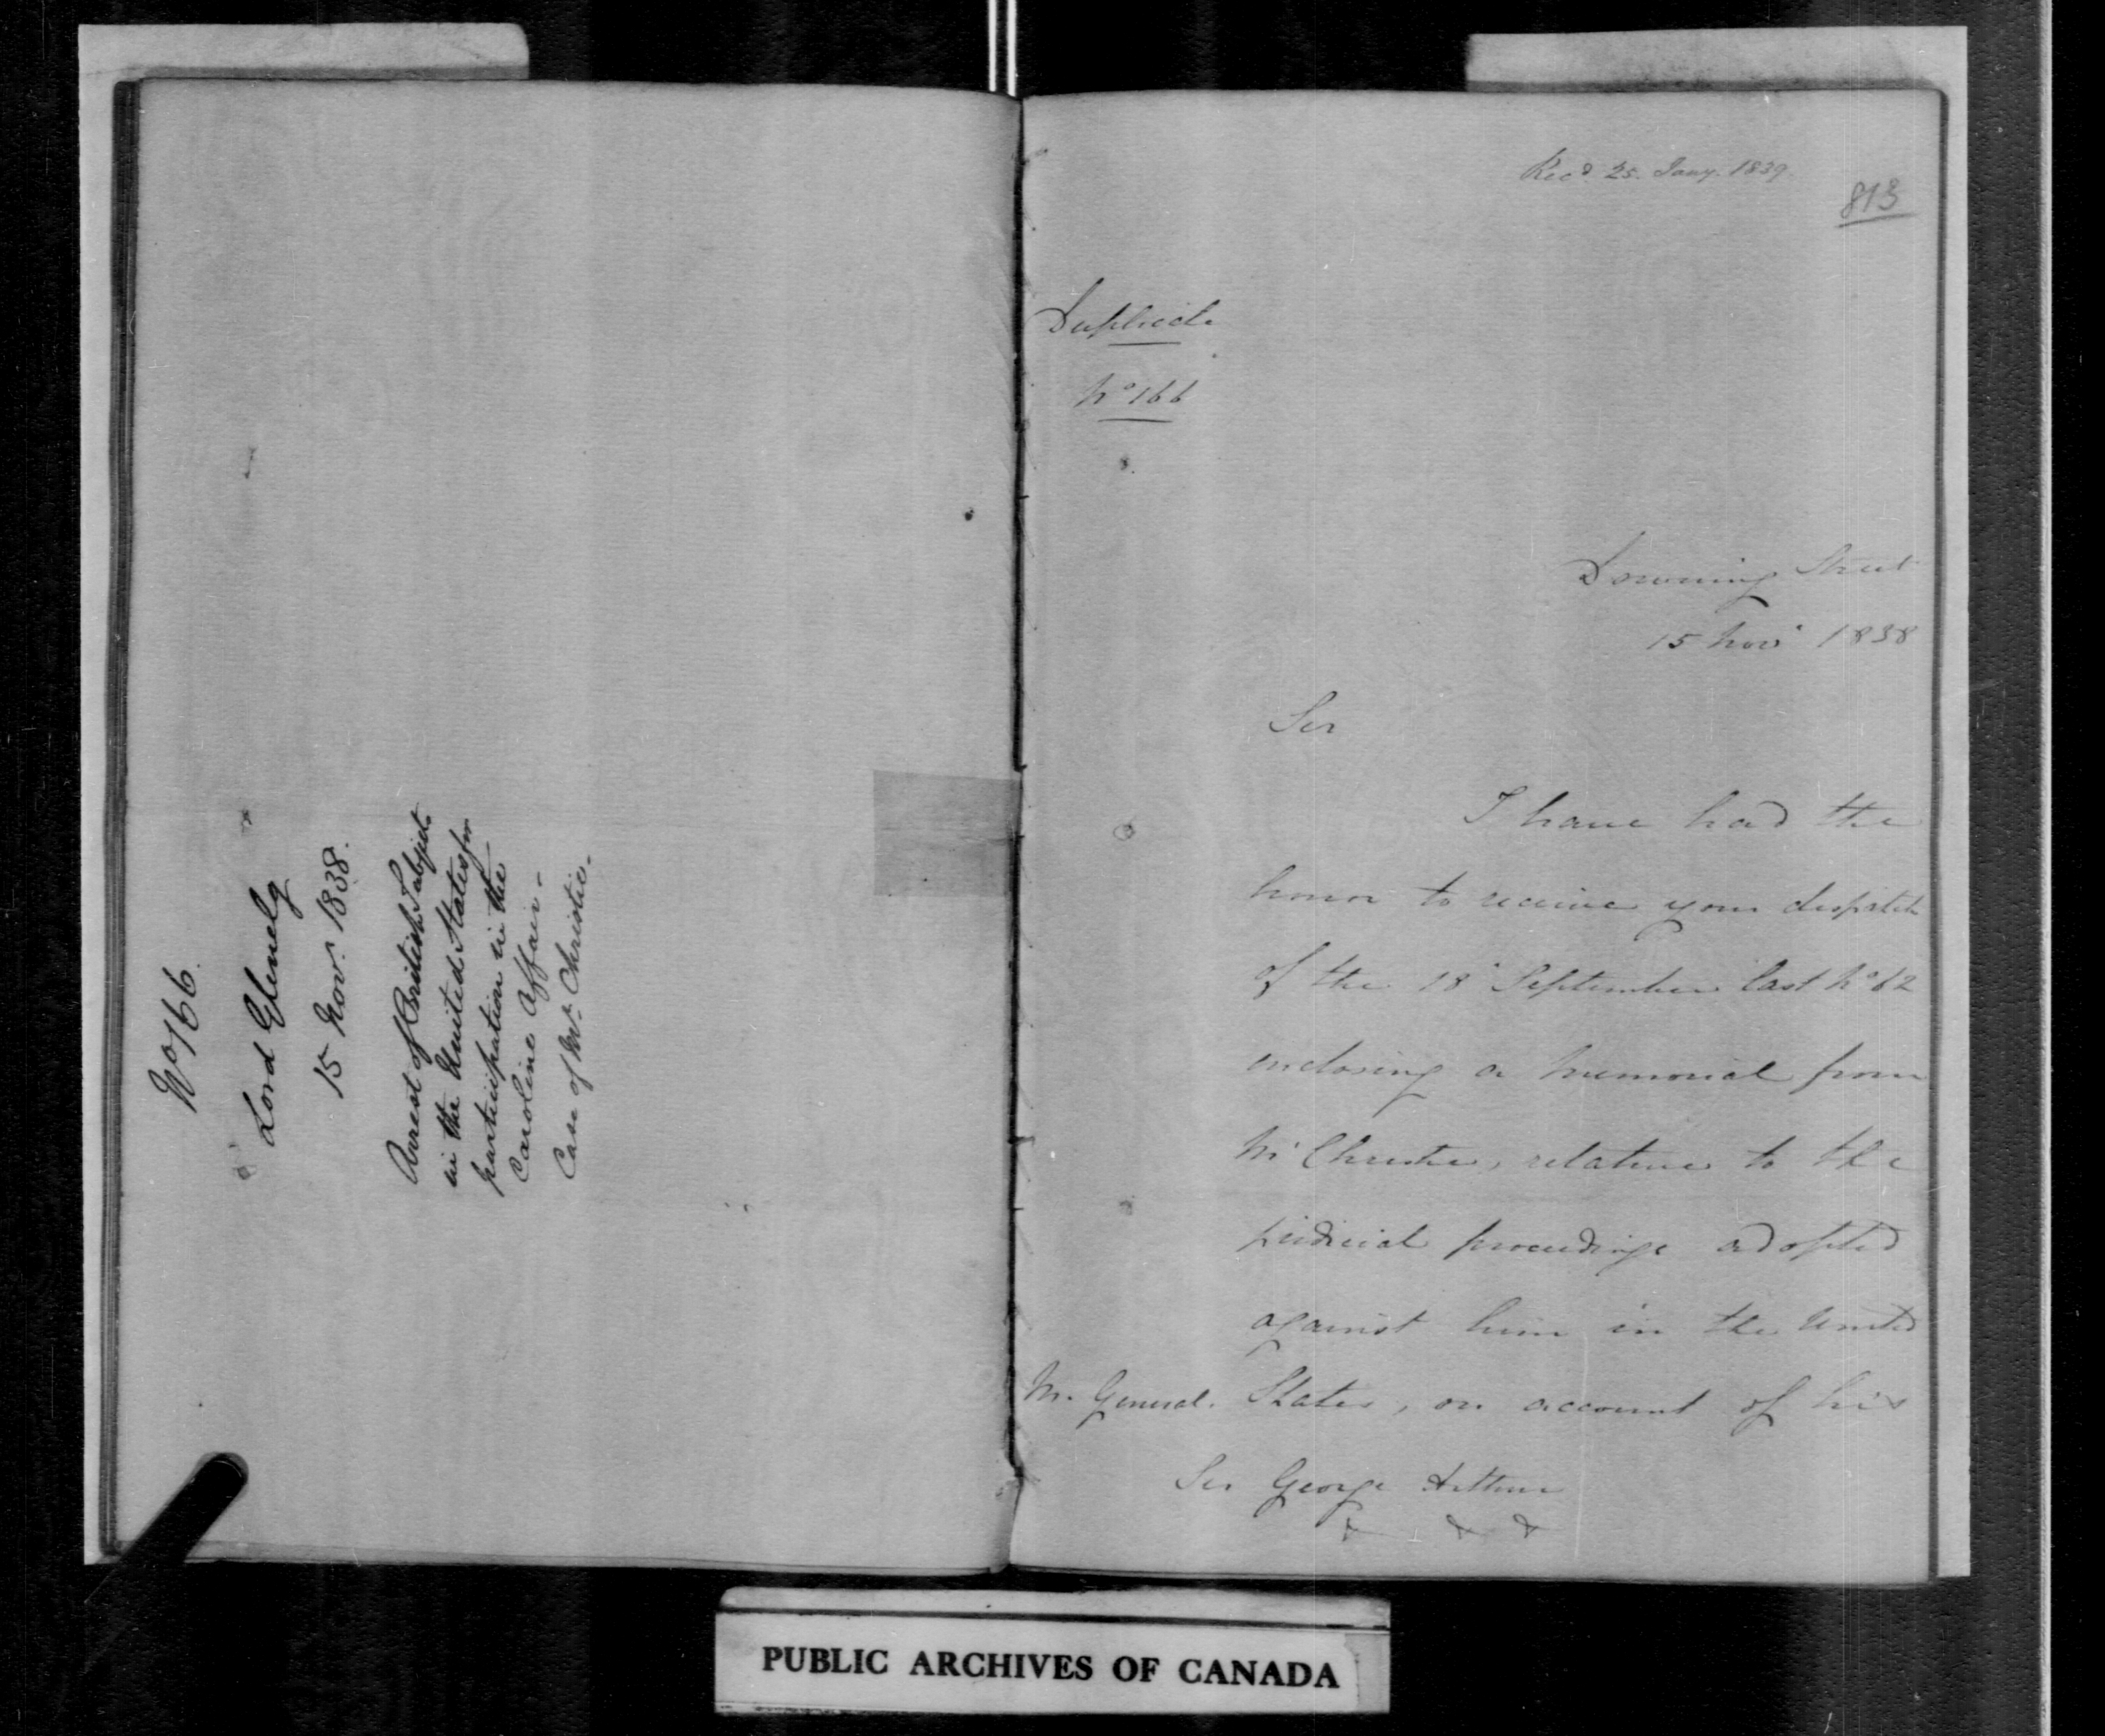 No 166.
Lord Glenelg
15 Nov.r 1838.
Arrest of British Subjects
in the United States for
participation in the
Caroline Affair -
Case of Mr. Christie.
Recd. 25. Jany. 1839.
813
Duplicate
No 166
Downing Street
15 Novr 1838
Sir
I have had the
honor to receive your despatch
of the 18th September last No 62
enclosing a memorial from
Mr Christie, relative to the
judicial proceedings adopted
against him in the United
States, on account of his
M. General.
Sir George Arthur
& & &
PUBLIC ARCHIVES OF CANADA